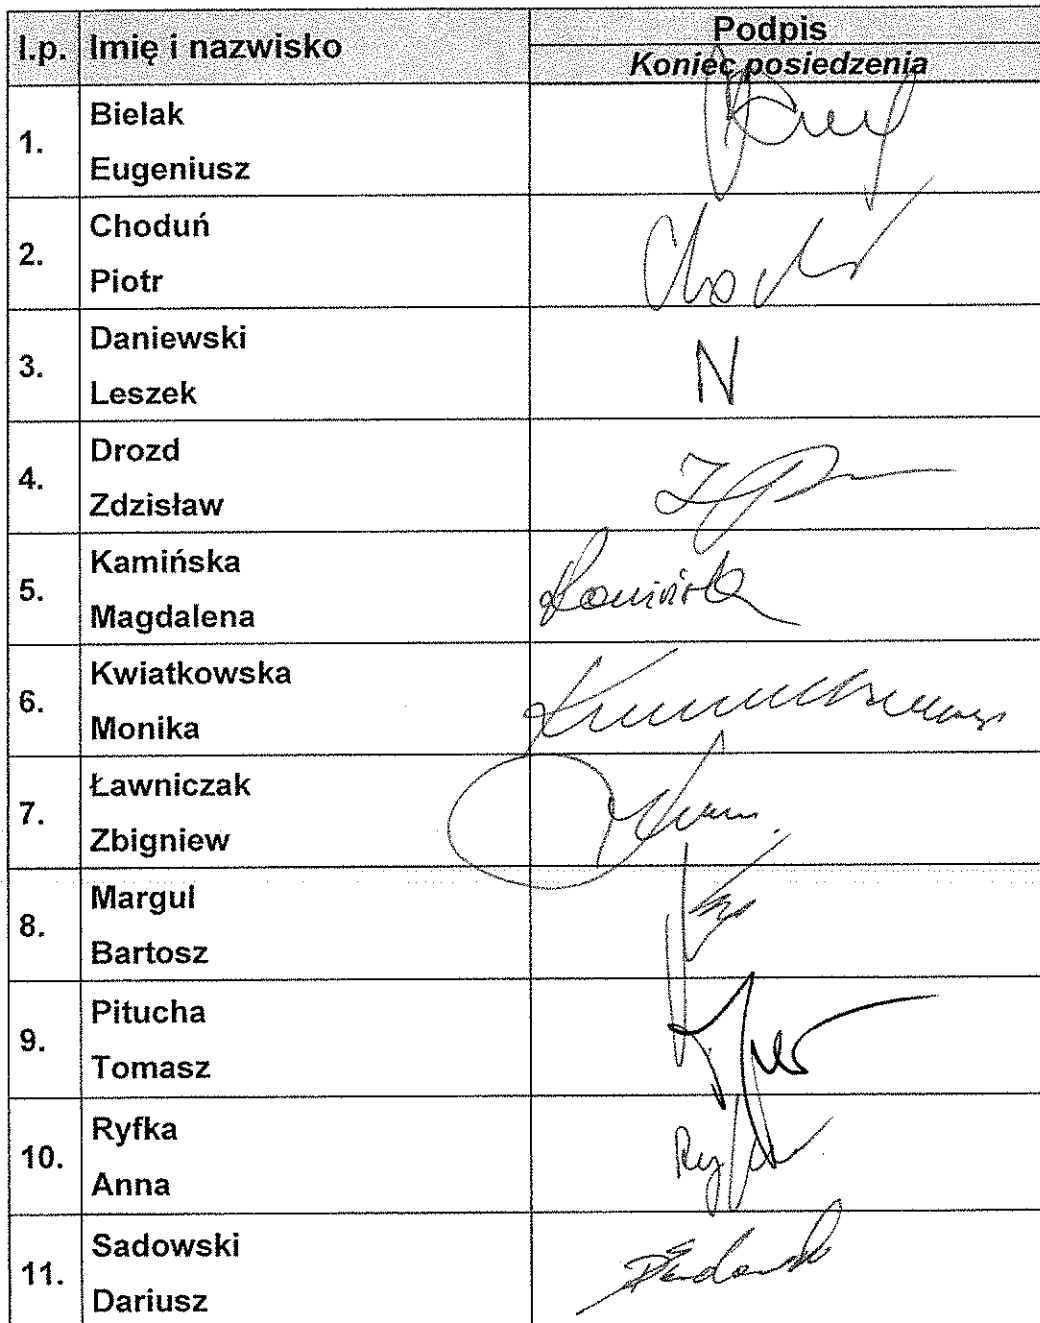 l.p. Imię i nazwisko Podpis
Koniec posiedzenia
1. Bielak
Eugeniusz
2. Choduń
Piotr
3. Daniewski
Leszek
N
4. Drozd
Zdzisław
5. Kamińska
Magdalena
Kamińska
6. Kwiatkowska
Monika
7. Ławniczak
Zbigniew
8. Margul
Bartosz
9. Pitucha
Tomasz
10. Ryfka
Anna
11. Sadowski
Dariusz